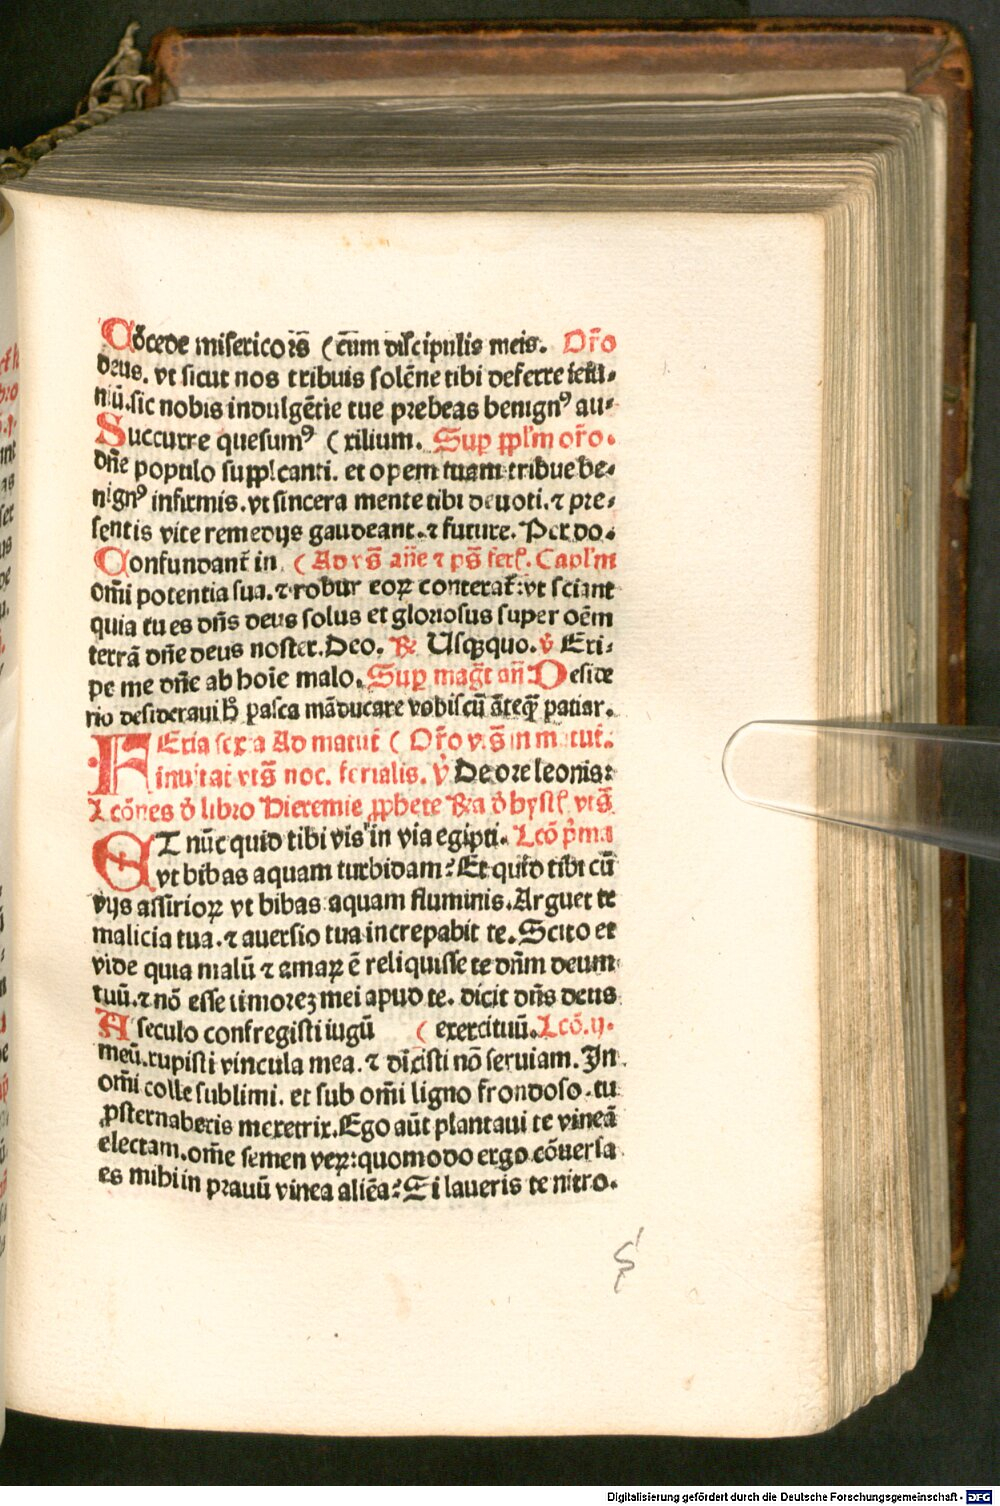 Cõcede misericors̃ ( cũm discipulis meis. Orõ
deus. vt sicut nos tribuis solẽne tibi deferre ieiu⸗
niũ. sic nobis indulgẽtie tue prebeas benignꝰ au⸗
Succurre quesumꝰ ( xilium. Sup ꝓpl'm orõ.
dñe populo supplicanti. et opem tuam tribue be⸗
nignꝰ infirmis. vt sincera mente tibi deuoti. ⁊ pre⸗
sentis vite remedijs gaudeant. ⁊ future. Per do.
Confundant̃ in ( Ad vs̃ añe ⁊ ps̃ ferl'. Capl'm
om̃i potentia sua. ⁊ robur eoꝝ conterat̃: vt sciant
quia tu es dñs deus solus et gloriosus super oẽm
terrã dñe deus noster. Deo. ℟ Usq̃quo. ℣ Eri⸗
pe me dñe ab hoĩe malo. Sup mag̃t añ Deside
rio desideraui h̃ pasca mãducare vobiscũ ãteq̃ patiar.
FEria sexta Ad matut̃ ( Orõ v. s̃ in matut̃.
inuitat vts̃ noc. ferialis. ℣ De ore leonis:
Lcõnes d̃ libro Hieremie ꝓphete ℟a d̃ hystl' vts̃
ET nũc quid tibi vis in via egipti. Lcõ p̃ma
vt bibas aquam turbidam? Et quid tibi cũ
vijs assirioꝝ vt bibas aquam fluminis. Arguet te
malicia tua. ⁊ auersio tua increpabit te. Scito et
vide quia malũ ⁊ amaꝝ ẽ reliquisse te dñm deum
tuũ. ⁊ nõ esse timorez mei apud te. dicit dñs deus
A seculo confregisti iugũ ( exercituũ. Lcõ. ij.
meũ. rupisti vincula mea. ⁊ dixisti nõ seruiam. In
om̃i colle sublimi. et sub om̃i ligno frondoso. tu
ꝓsternaberis meretrix. Ego aũt plantaui te vineã
electam. om̃e semen veꝝ: quomodo ergo cõuersa
es mihi in prauũ vinea aliẽa? Si laueris te nitro.
Digitalisierung gefördert durch die Deutsche Forschungsgemeinschaft - DFG